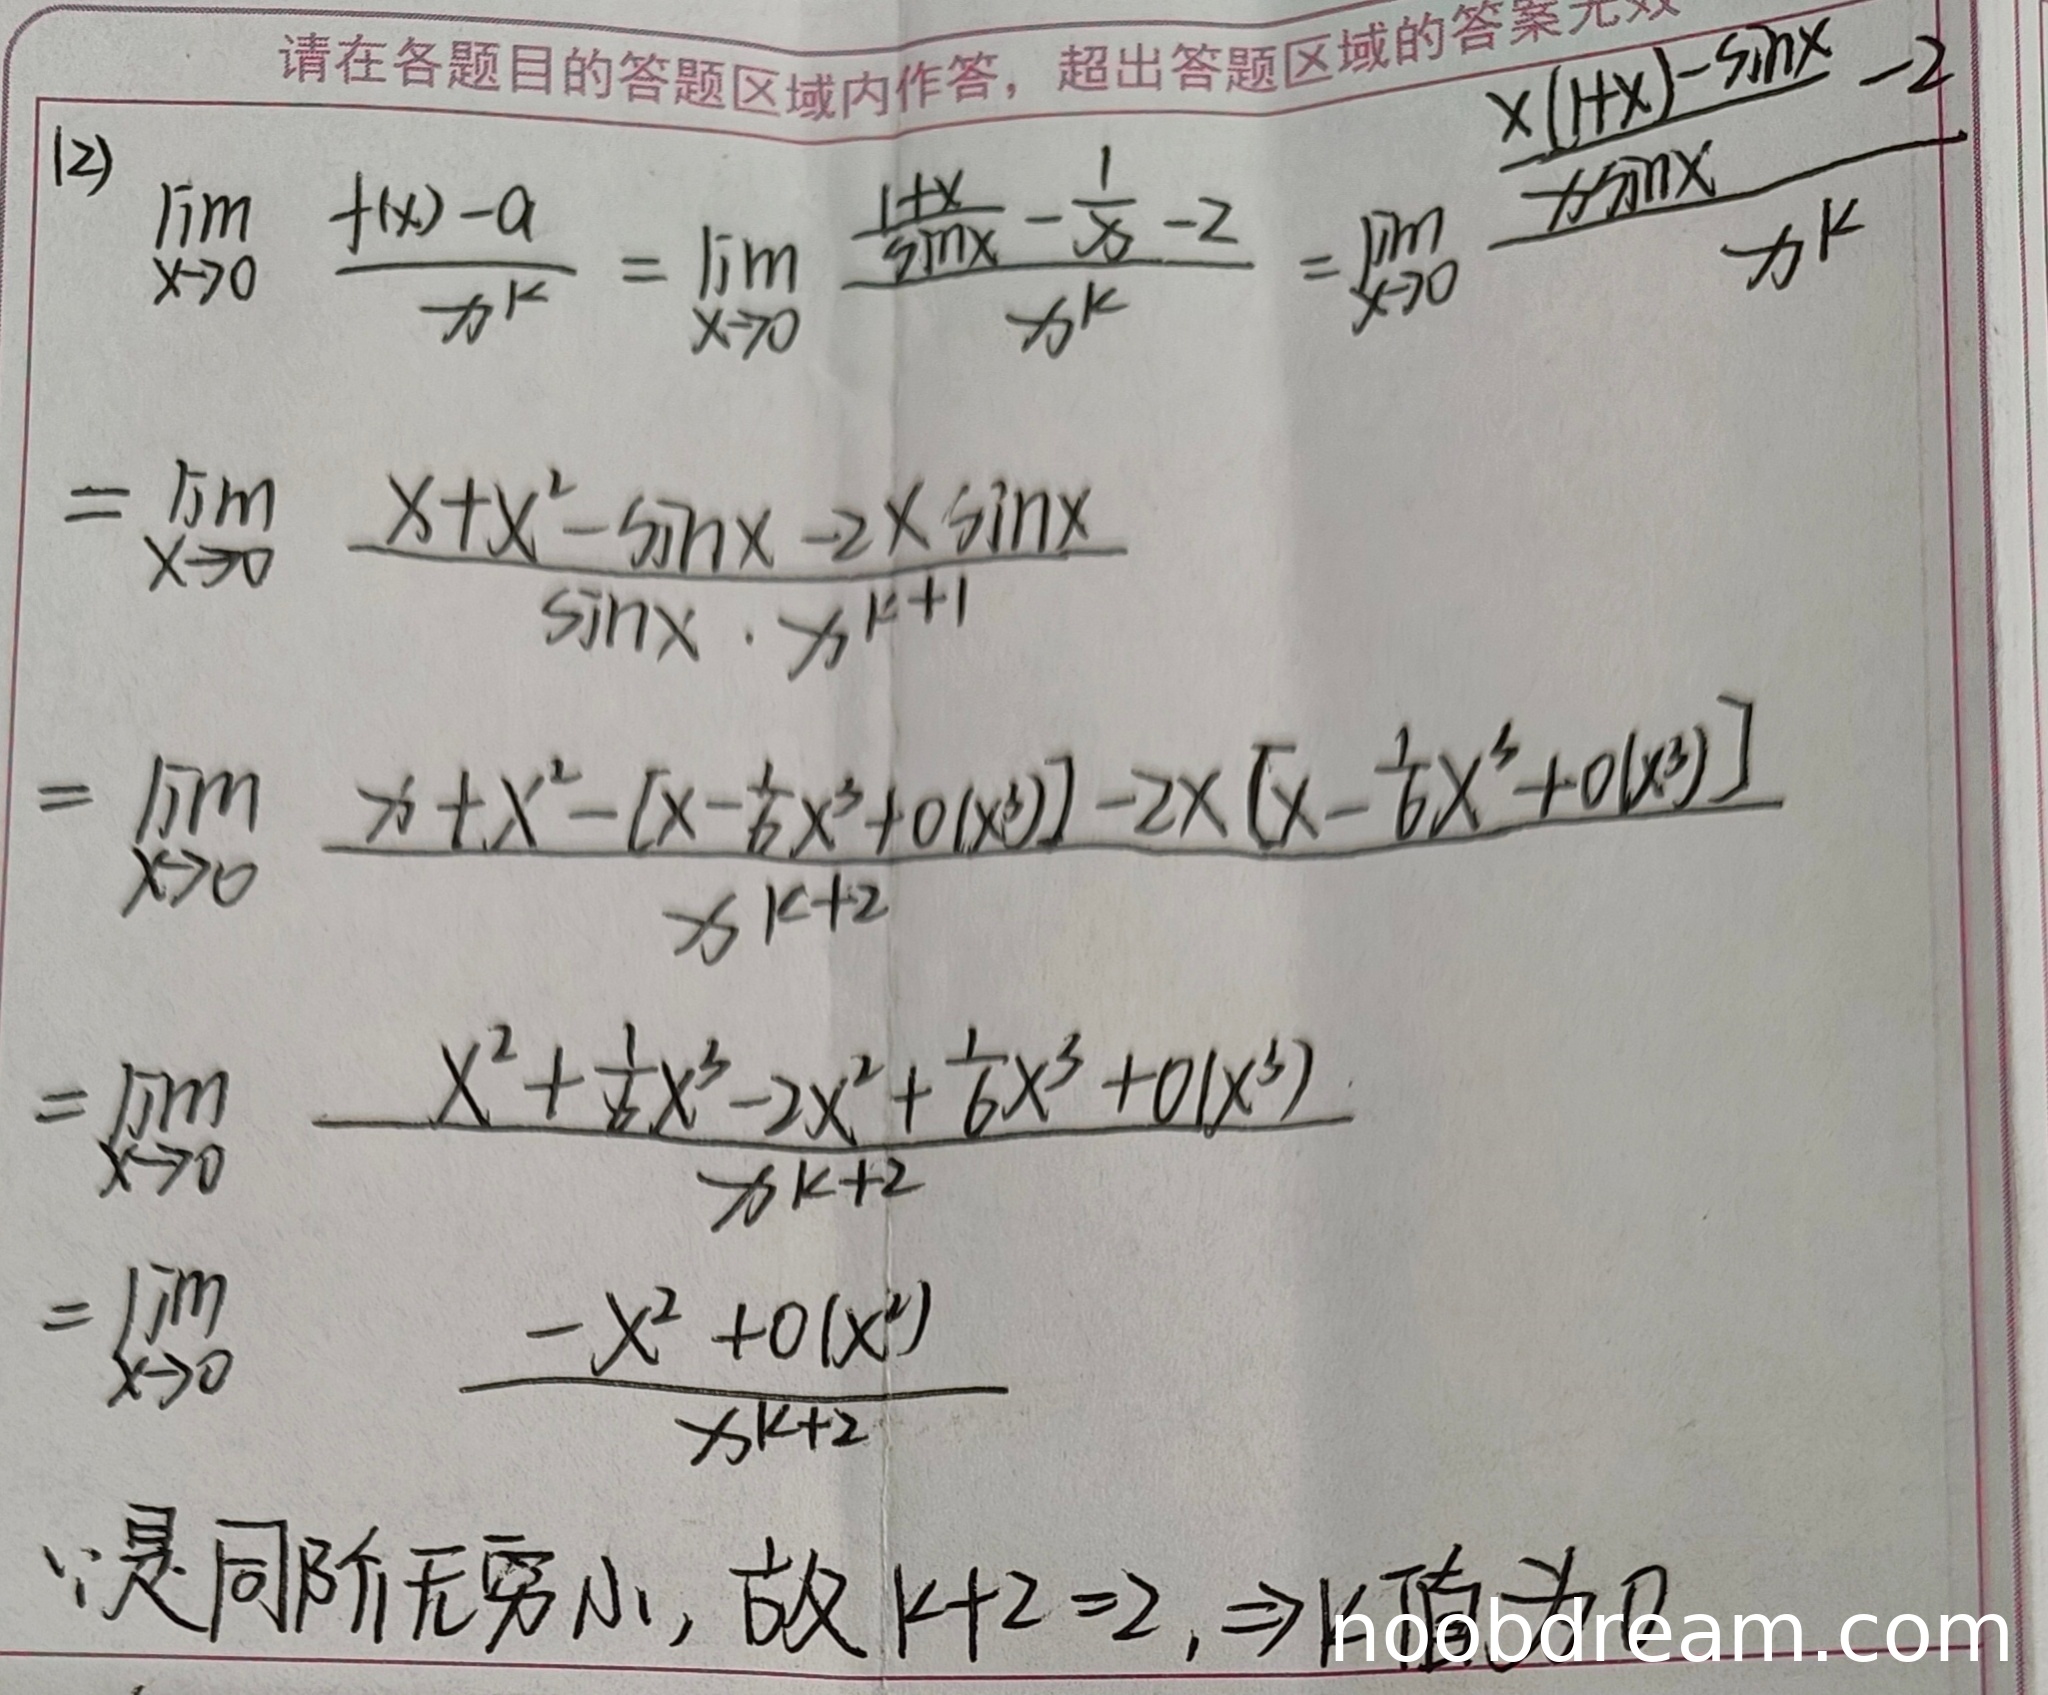 请在各题目的答题区域内作答，超出答题区域的答案无效
(2)
lim x→0 (f(x)-a)/x^k = lim x→0 ((1+x)/sinx - 1/x - 2)/x^k = lim x→0 ((x(1+x)-sinx)/(xsinx) - 2)/x^k
= lim x→0 (x+x²-sinx-2xsinx)/(sinx·x^(k+1))
= lim x→0 (x+x²-[x-1/6x³+o(x³)]-2x[x-1/6x³+o(x³)])/x^(k+2)
= lim x→0 (x²+1/6x³-2x²+1/6x³+o(x³))/x^(k+2)
= lim x→0 (-x²+o(x²))/x^(k+2)
∵是同阶无穷小, 故k+2=2, ⇒k值为0
noobdream.com